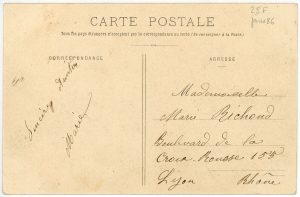 25 F
CARTE POSTALE
Tous les pays étrangers n'acceptent pas la correspondance au recto (Se renseigner à la Poste).
CORRESPONDANCE
ADRESSE
Sincère
Marie
Mademoiselle
Marie Richond
Boulevard de la
Croix-Rousse 155
Lyon Rhône